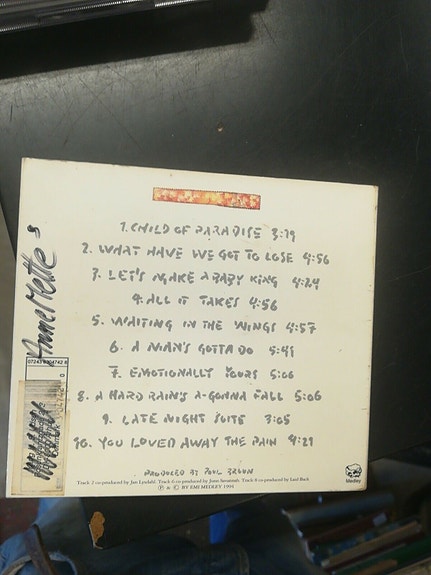 1. CHILD OF PARADISE 3:19
2. WHAT HAVE WE GOT TO LOSE 4:56
3. LET'S MAKE A BABY KING 4:24
4. ALL IT TAKES 4:56
5. WAITING IN THE WINGS 4:57
6. A MAN'S GOTTA DO 5:41
7. EMOTIONALLY YOURS 5:06
8. A HARD RAIN'S A-GONNA FALL 5:06
9. LATE NIGHT SUITE 3:05
10. YOU LOVED AWAY THE PAIN 4:29
PRODUCED BY POUL BRUUN
Track 2 co-produced by Jan Lysdahl. Track 6 co-produced by June Savannah. Track 8 co-produced by Laid Back
℗ & © BY EMI MEDLEY 1994
Medley
AnneMette